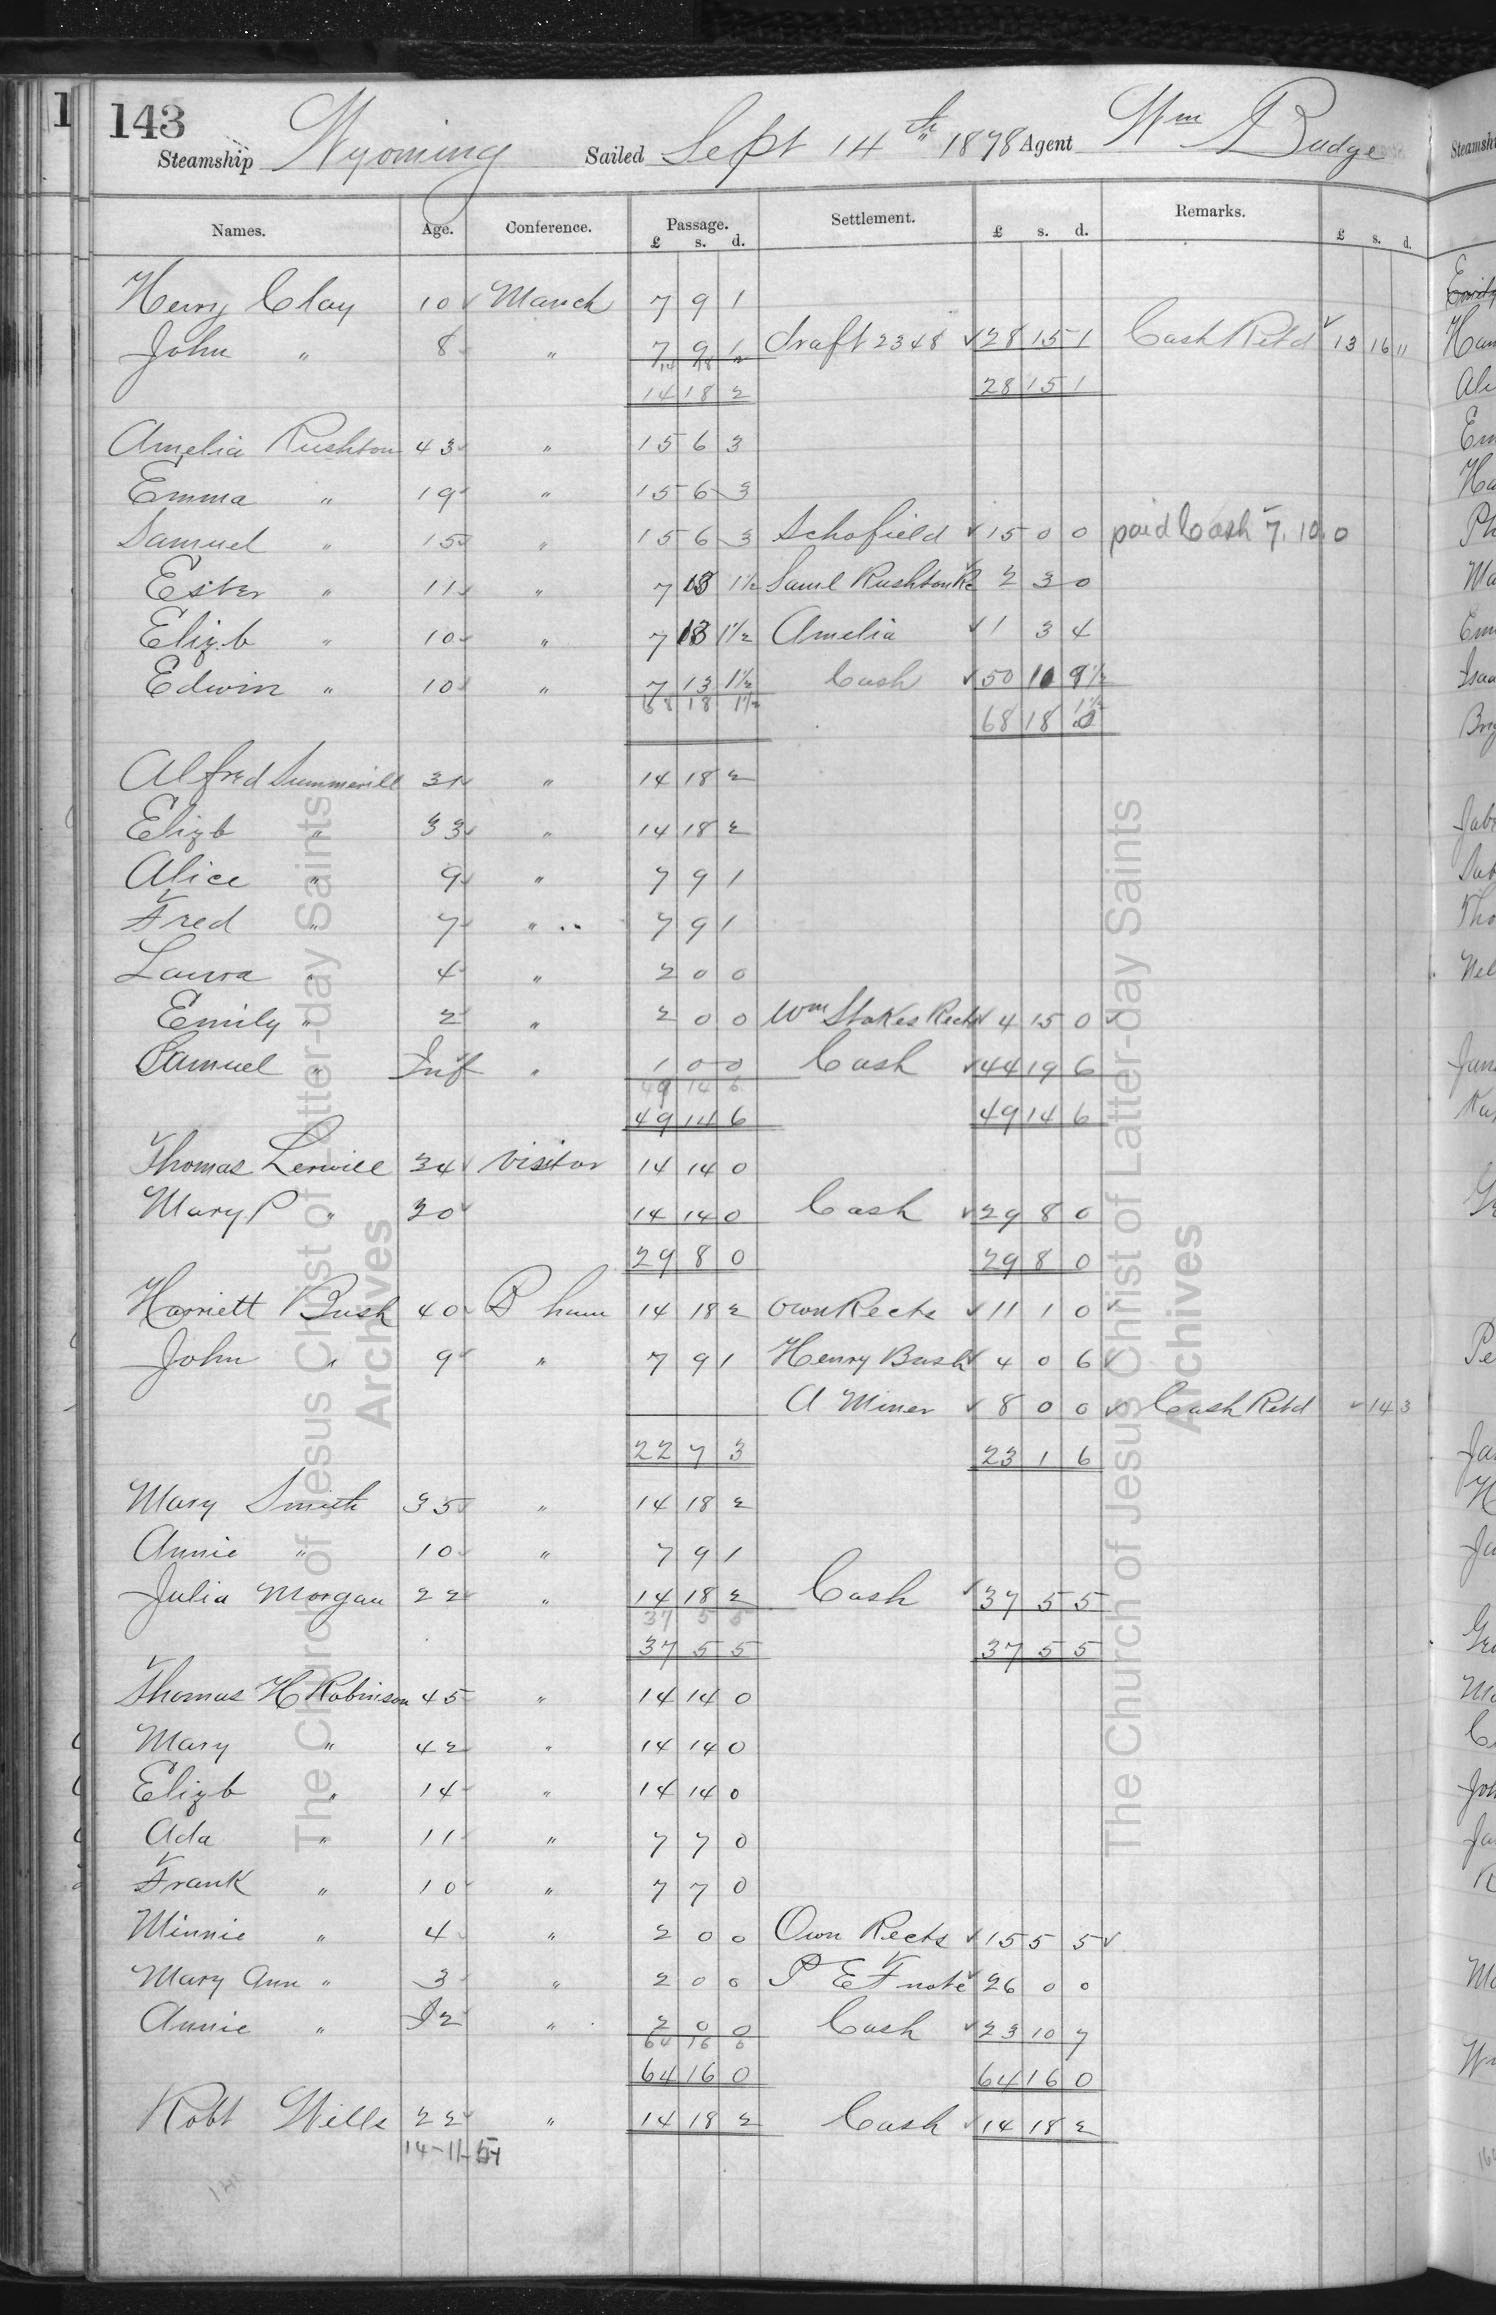 143
Steamship Wyoming Sailed Sept 14th 1878 Agent Wm Budge
Names. Age. Conference. Passage. £ s. d. Settlement. £ s. d. Remarks. £ s. d.
Henry Clay 10 Manch 7 9 1
John " 8 " 7 9 1 draft 2348 28 15 1 Cash Retd 13 16 11
14 18 2 28 15 1
Amelia Rushton 43 " 15 6 3
Emma " 19 " 15 6 3
Samuel " 15 " 15 6 3 Schofield 15 0 0 paid Cash 7. 10. 0
Ester " 11 " 7 13 1½ Saml Rushton Rc 2 3 0
Elizb " 10 " 7 13 1½ Amelia 1 3 4
Edwin " 10 " 7 13 1½ Cash 50 11 9½
68 18 1½ 68 18 1½
Alfred Summerill 31 " 14 18 2
Elizb " 33 " 14 18 2
Alice " 9 " 7 9 1
Fred " 7 " 7 9 1
Laura " 4 " 2 0 0
Emily " 2 " 2 0 0 Wm Stokes Rects 4 15 0
Samuel " Inf " 1 0 0 Cash 44 19 6
49 14 6
49 14 6 49 14 6
Thomas Lerwill 34 visitor 14 14 0
Mary P " 30 14 14 0 Cash 29 8 0
29 8 0 29 8 0
Harriett Bush 40 B ham 14 18 2 Own Rects 11 1 0
John " 9 " 7 9 1 Henry Bush 4 0 6
A Miner 8 0 0 Cash Retd 14 3
22 7 3 23 1 6
Mary Smith 35 " 14 18 2
Annie " 10 " 7 9 1
Julia Morgan 22 " 14 18 2 Cash 37 5 5
37 5 5
37 5 5 37 5 5
Thomas H Robinson 45 " 14 14 0
Mary " 42 " 14 14 0
Elizb " 14 " 14 14 0
Ada " 11 " 7 7 0
Frank " 10 " 7 7 0
Minnie " 4 " 2 0 0 Own Rects 15 5 5
Mary Ann " 3 " 2 0 0 P E F note 26 0 0
Annie " 2 " 2 0 0 Cash 23 10 7
64 16 0
64 16 0 64 16 0
Robt Wells 22 " 14 18 2 Cash 14 18 2
The Church of Jesus Christ of Latter-day Saints
Archives
The Church of Jesus Christ of Latter-day Saints
Archives